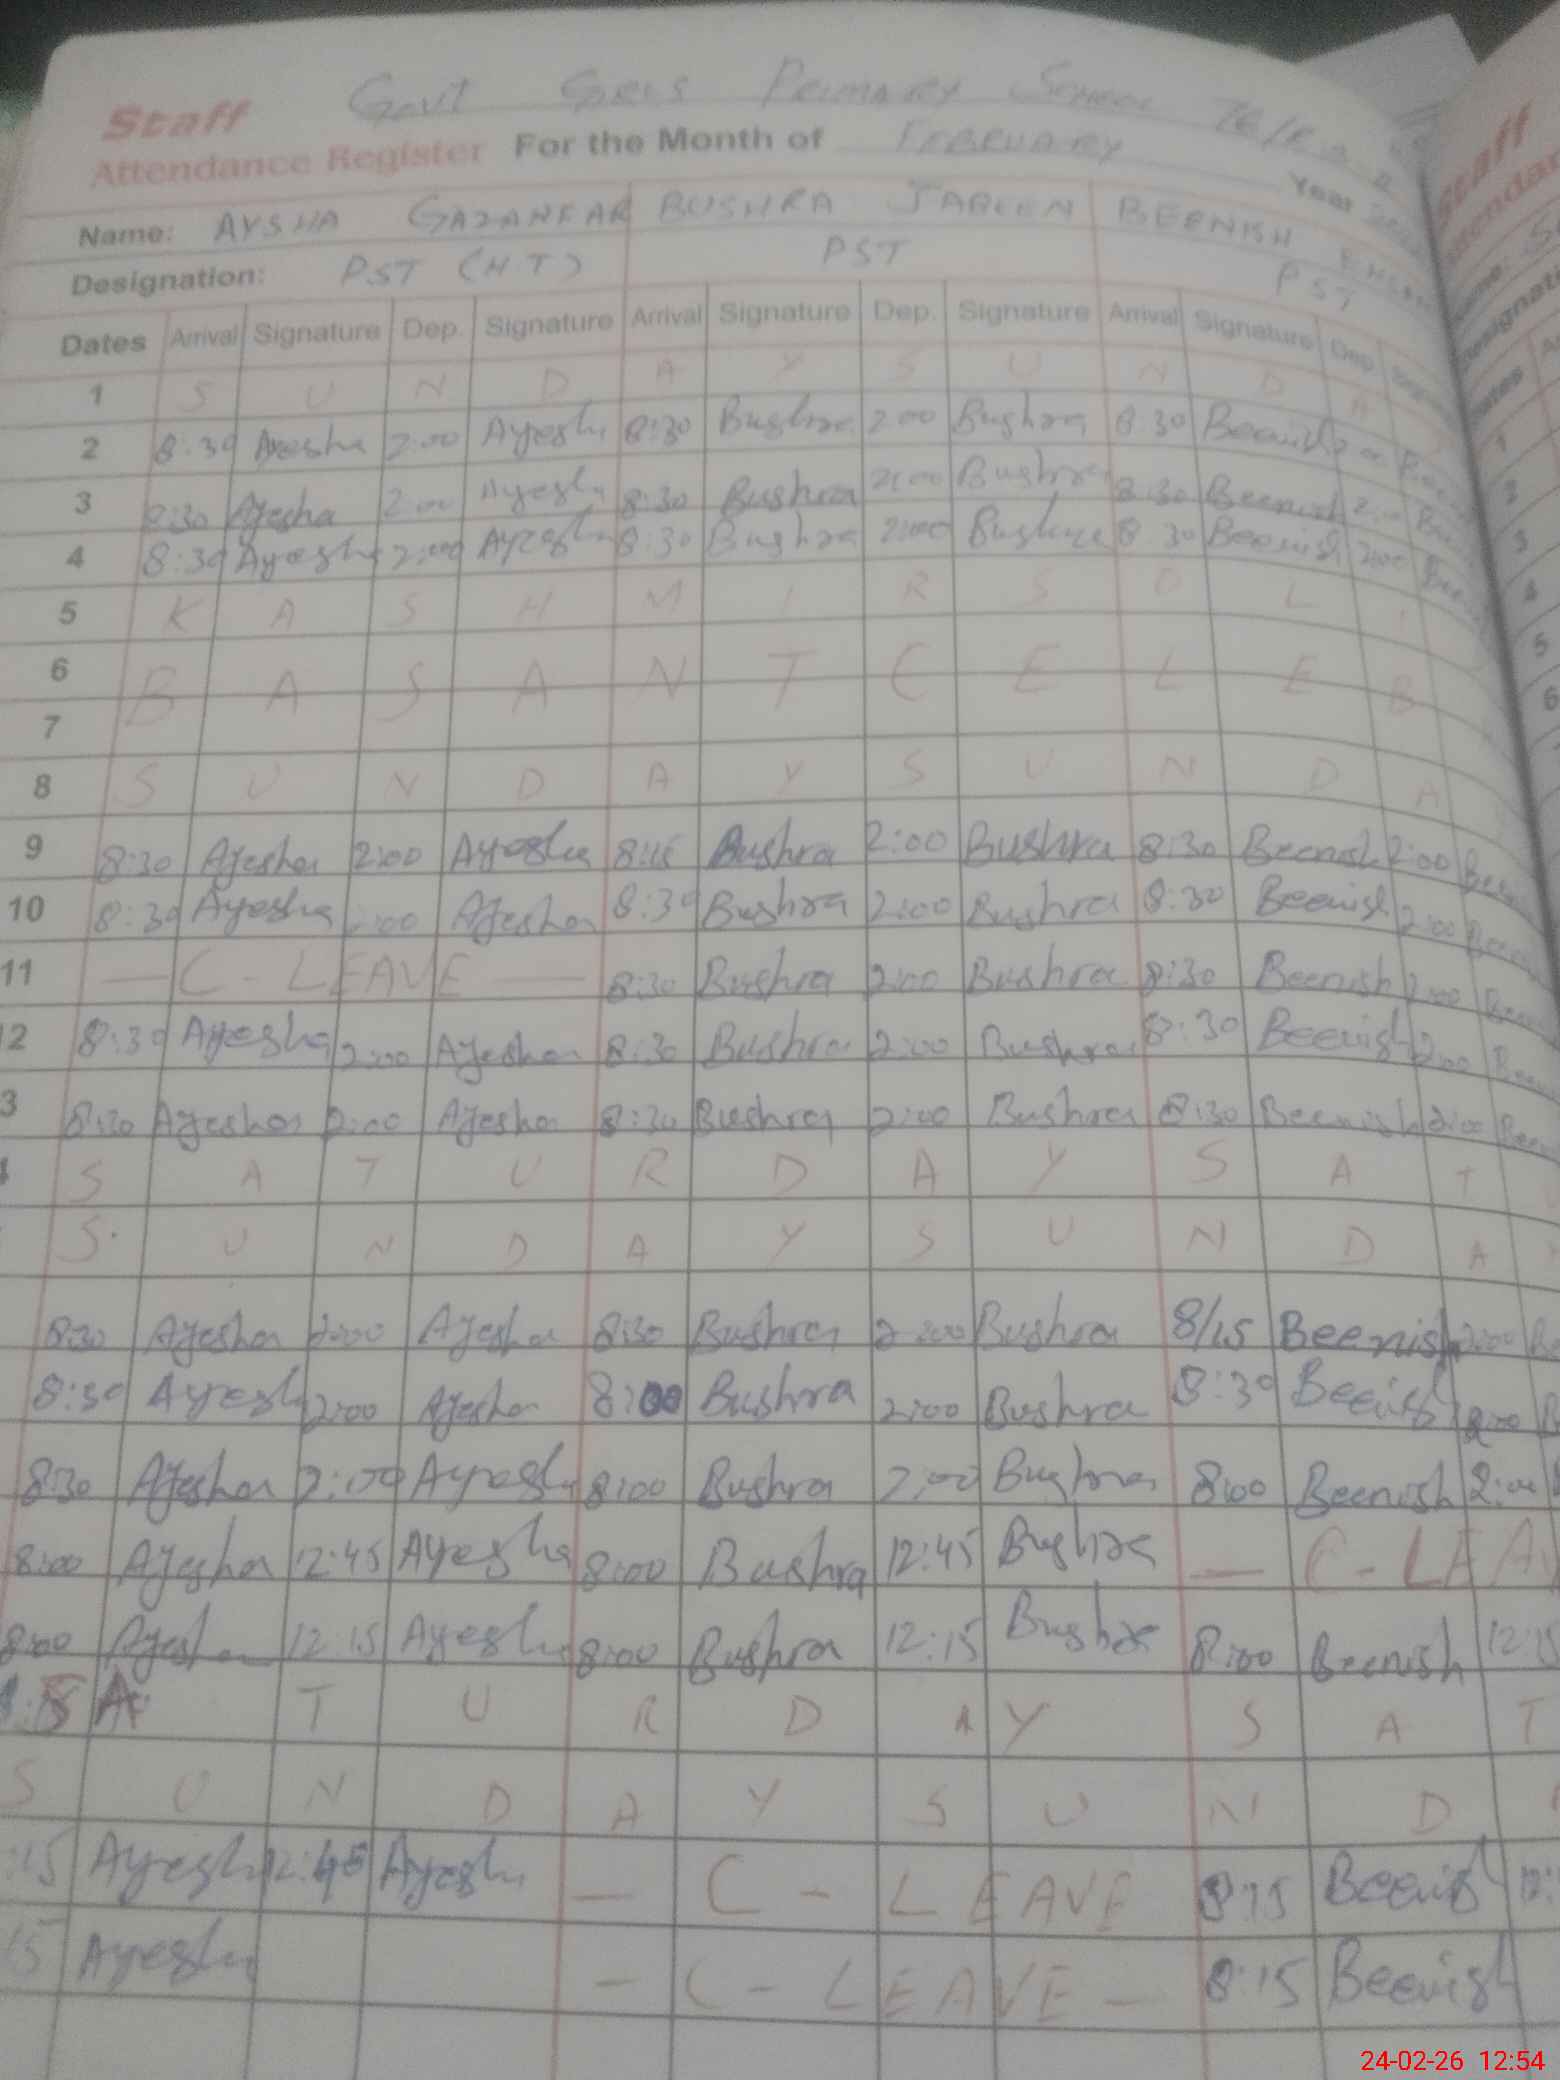 Staff Govt Girls Primary School
Attendance Register For the Month of FEBRUARY
Year
Name: AYSHA BUSHRA JABEEN BEENISH
Designation: PST (HT) PST PST
Dates Arrival Signature Dep. Signature Arrival Signature Dep. Signature Arrival Signature Dep
1 S U N D A Y S U N D A
2 8:30 Ayesha 2:00 Ayesha 8:30 Bushra 2:00 Bushra 8:30 Beenish 2:00
3 8:30 Ayesha 2:00 Ayesha 8:30 Bushra 2:00 Bushra 8:30 Beenish
4 8:30 Ayesha 2:00 Ayesha 8:30 Bushra 2:00 Bushra 8:30 Beenish 2:00
5 K A S H M I R S O L I
6 B A S A N T C E L E B
7
8 S U N D A Y S U N D A
9 8:30 Ayesha 2:00 Ayesha 8:15 Bushra 2:00 Bushra 8:30 Beenish 2:00
10 8:30 Ayesha 2:00 Ayesha 8:30 Bushra 2:00 Bushra 8:30 Beenish 2:00
11 — C - LEAVE — 8:30 Bushra 2:00 Bushra 8:30 Beenish 2:00
2 8:30 Ayesha 2:00 Ayesha 8:30 Bushra 2:00 Bushra 8:30 Beenish 2:00
3 8:30 Ayesha 2:00 Ayesha 8:30 Bushra 2:00 Bushra 8:30 Beenish 2:00
S A T U R D A Y S A T
S U N D A Y S U N D A
8:30 Ayesha 2:00 Ayesha 8:30 Bushra 2:00 Bushra 8/15 Beenish 2:00
8:30 Ayesha 2:00 Ayesha 8:00 Bushra 2:00 Bushra 8:30 Beenish 2:00
8:30 Ayesha 2:00 Ayesha 8:00 Bushra 2:00 Bushra 8:00 Beenish 2:00
8:00 Ayesha 12:45 Ayesha 8:00 Bushra 12:45 Bushra — C - LEAV
8:00 Ayesha 12:15 Ayesha 8:00 Bushra 12:15 Bushra 8:00 Beenish 12:15
S A T U R D A Y S A T
S U N D A Y S U N D
:15 Ayesha 12:45 Ayesha — C - LEAVE 8:15 Beenish 12:
15 Ayesha — C - LEAVE — 8:15 Beenish
24-02-26 12:54